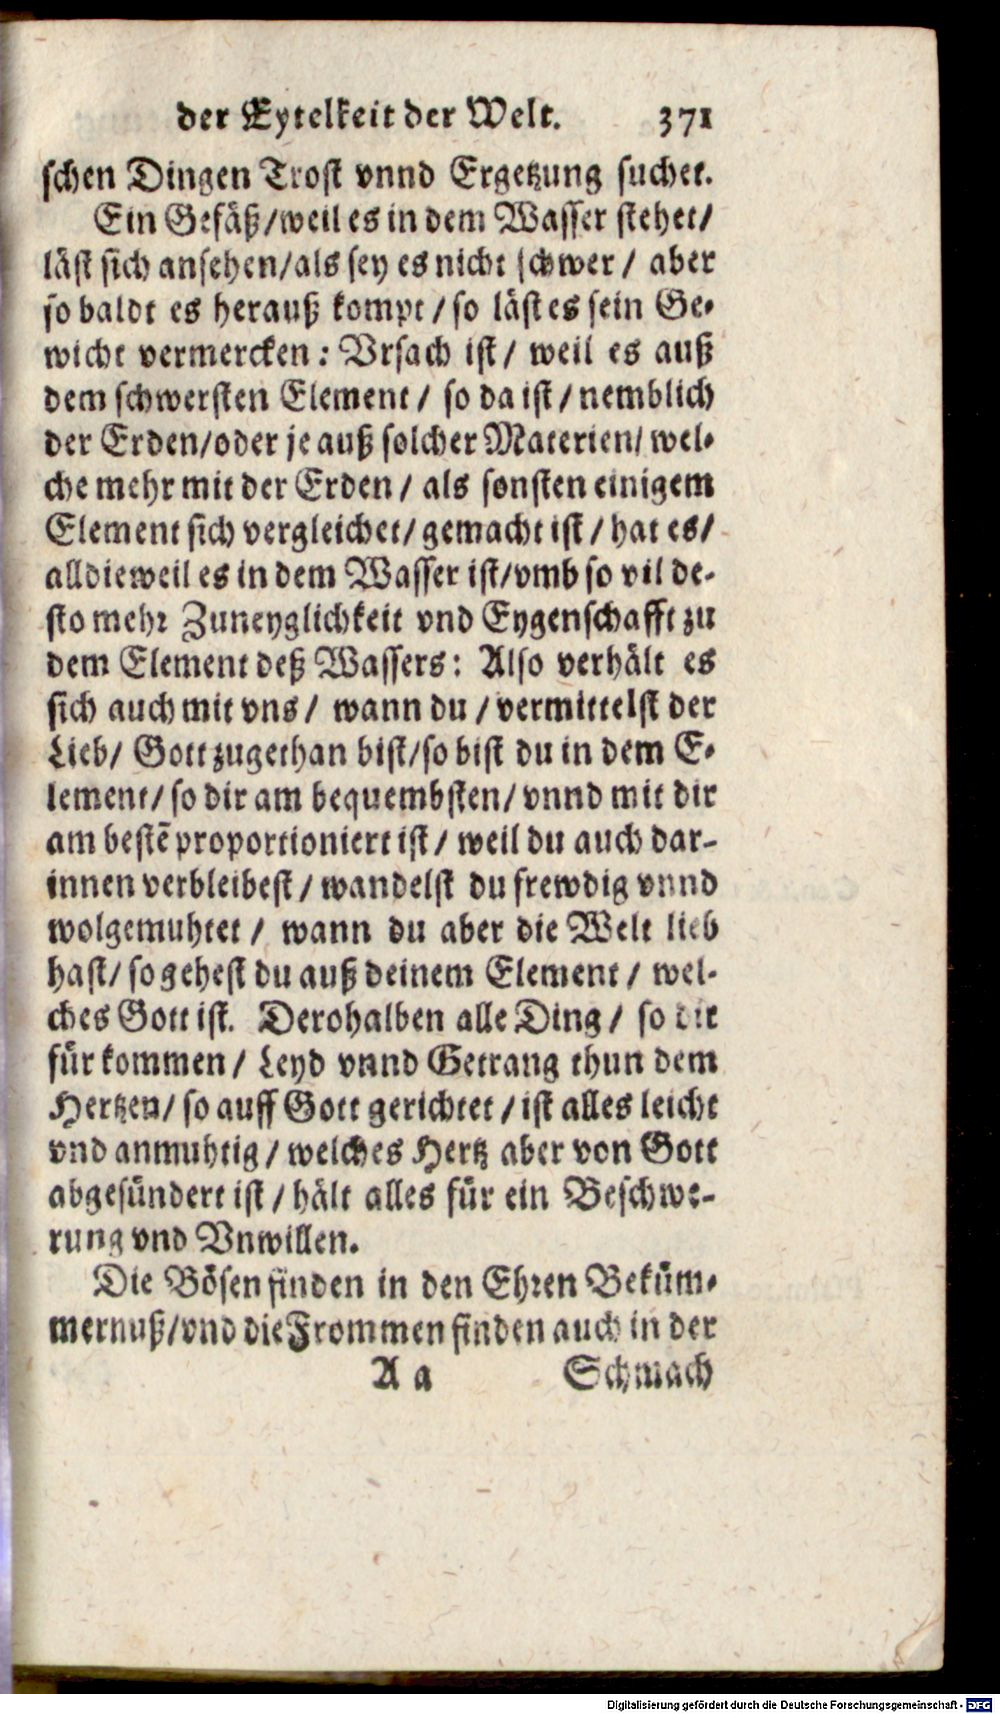 der Eytelkeit der Welt. 371
schen Dingen Trost vnnd Ergetzung suchet.
Ein Gefäß/weil es in dem Wasser stehet/
läst sich ansehen/als sey es nicht schwer / aber
so baldt es herauß kompt / so läst es sein Ge-
wicht vermercken: Vrsach ist / weil es auß
dem schwersten Element / so da ist / nemblich
der Erden/oder je auß solcher Materien/ wel-
che mehr mit der Erden / als sonsten einigem
Element sich vergleichet/ gemacht ist / hat es/
alldieweil es in dem Wasser ist/vmb so vil de-
sto mehr Zuneyglichkeit vnd Eygenschafft zu
dem Element deß Wassers: Also verhält es
sich auch mit vns / wann du / vermittelst der
Lieb/ Gott zugethan bist/so bist du in dem E-
lement/ so dir am bequembsten/ vnnd mit dir
am bestē proportioniert ist / weil du auch dar-
innen verbleibest / wandelst du frewdig vnnd
wolgemuhtet / wann du aber die Welt lieb
hast/ so gehest du auß deinem Element / wel-
ches Gott ist. Derohalben alle Ding / so dir
für kommen / Leyd vnnd Getrang thun dem
Hertzen/ so auff Gott gerichtet / ist alles leicht
vnd anmuhtig / welches Hertz aber von Gott
abgesündert ist / hält alles für ein Beschwe-
rung vnd Vnwillen.
Die Bösen finden in den Ehren Beküm-
mernuß/vnd die Frommen finden auch in der
A a Schmach
Digitalisierung gefördert durch die Deutsche Forschungsgemeinschaft - DFG